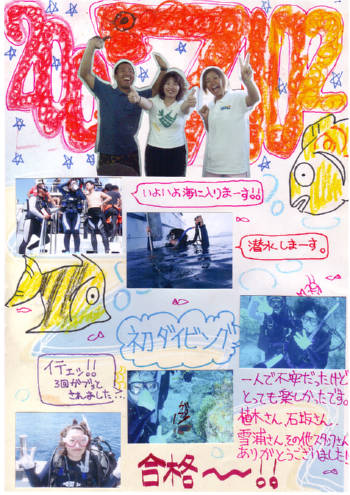 2007 7/02
いよいよ海に入りまーす!!
潜水しまーす。
初ダイビング
イテェッ!!
3回がブっと
されました…
一人で不安だったけど
とっても楽しかったです。
植木さん、石坂さん、
雪浦さんその他スタッフさん
ありがとうございました!
合格〜!!